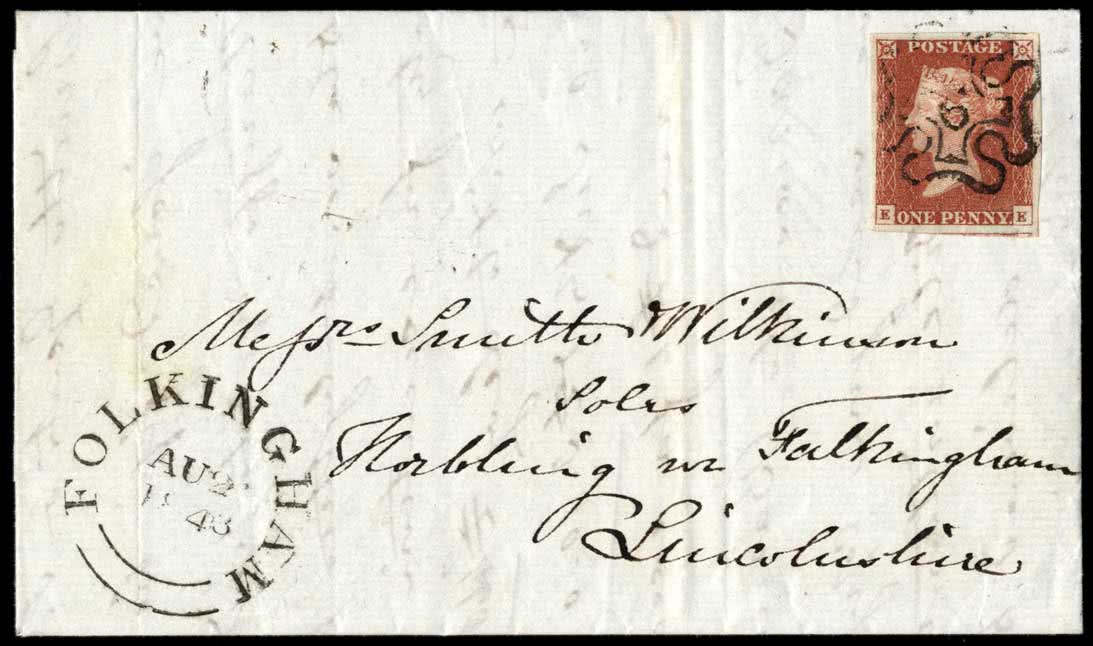 POSTAGE
6
E ONE PENNY E
Messrs Smith & Wilkinson
Solrs
Horbling nr Falkingham
Lincolnshire
FOLKINGHAM
AU 2
43